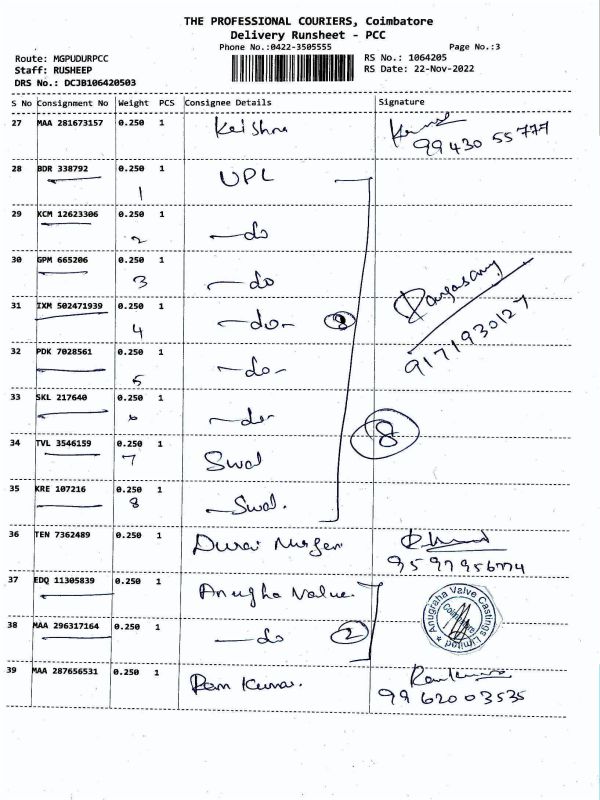 THE PROFESSIONAL COURIERS, Coimbatore
Delivery Runsheet - PCC
Phone No.:0422-3505555 Page No.:3
Route: MGPUDURPCC RS No.: 1064205
Staff: RUSHEEP RS Date: 22-Nov-2022
DRS No.: DCJB106420503
S No Consignment No Weight PCS Consignee Details Signature
27 MAA 281673157 0.250 1 Krishna
99430 55777
28 BDR 338792 0.250 1 UPL
1
29 KCM 12623306 0.250 1 -do
2
30 GPM 665206 0.250 1 -do
3
31 IXM 502471939 0.250 1 -do- 8
4
9171930127
32 PDK 7028561 0.250 1 -do-
5
33 SKL 217640 0.250 1 -do-
6
8
34 TVL 3546159 0.250 1 Swal
7
35 KRE 107216 0.250 1 -Swal.
8
36 TEN 7362489 0.250 1 Durai
37 EDQ 11305839 0.250 1 Anugha Value.
Anugraha Valve Castings Limited
Coimbatore
38 MAA 296317164 0.250 1 -do 2
39 MAA 287656531 0.250 1 Ram Kumar.
9962003535